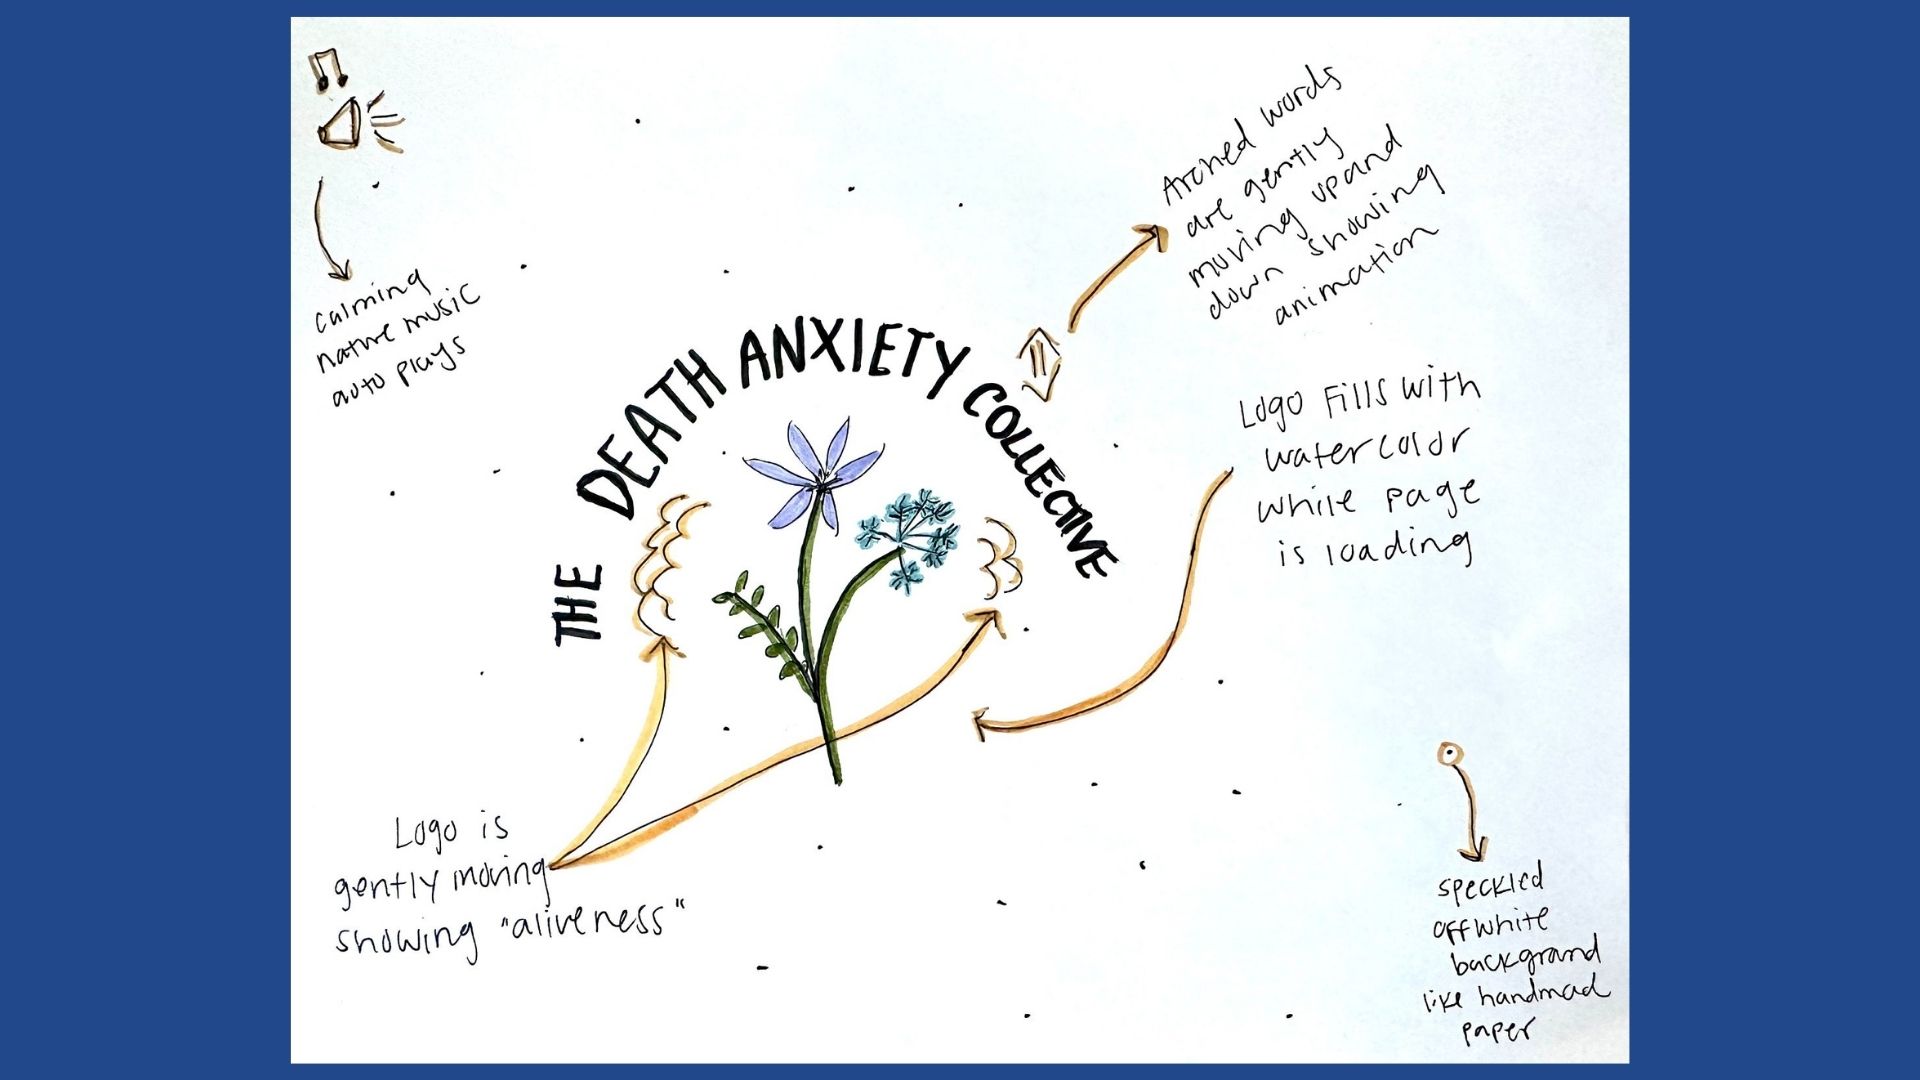 calming
nature music
auto plays
Arched words
are gently
moving up and
down showing
animation
THE DEATH ANXIETY COLLECTIVE
Logo fills with
watercolor
while page
is loading
Logo is
gently moving
showing "aliveness"
speckled
offwhite
background
like handmad
paper